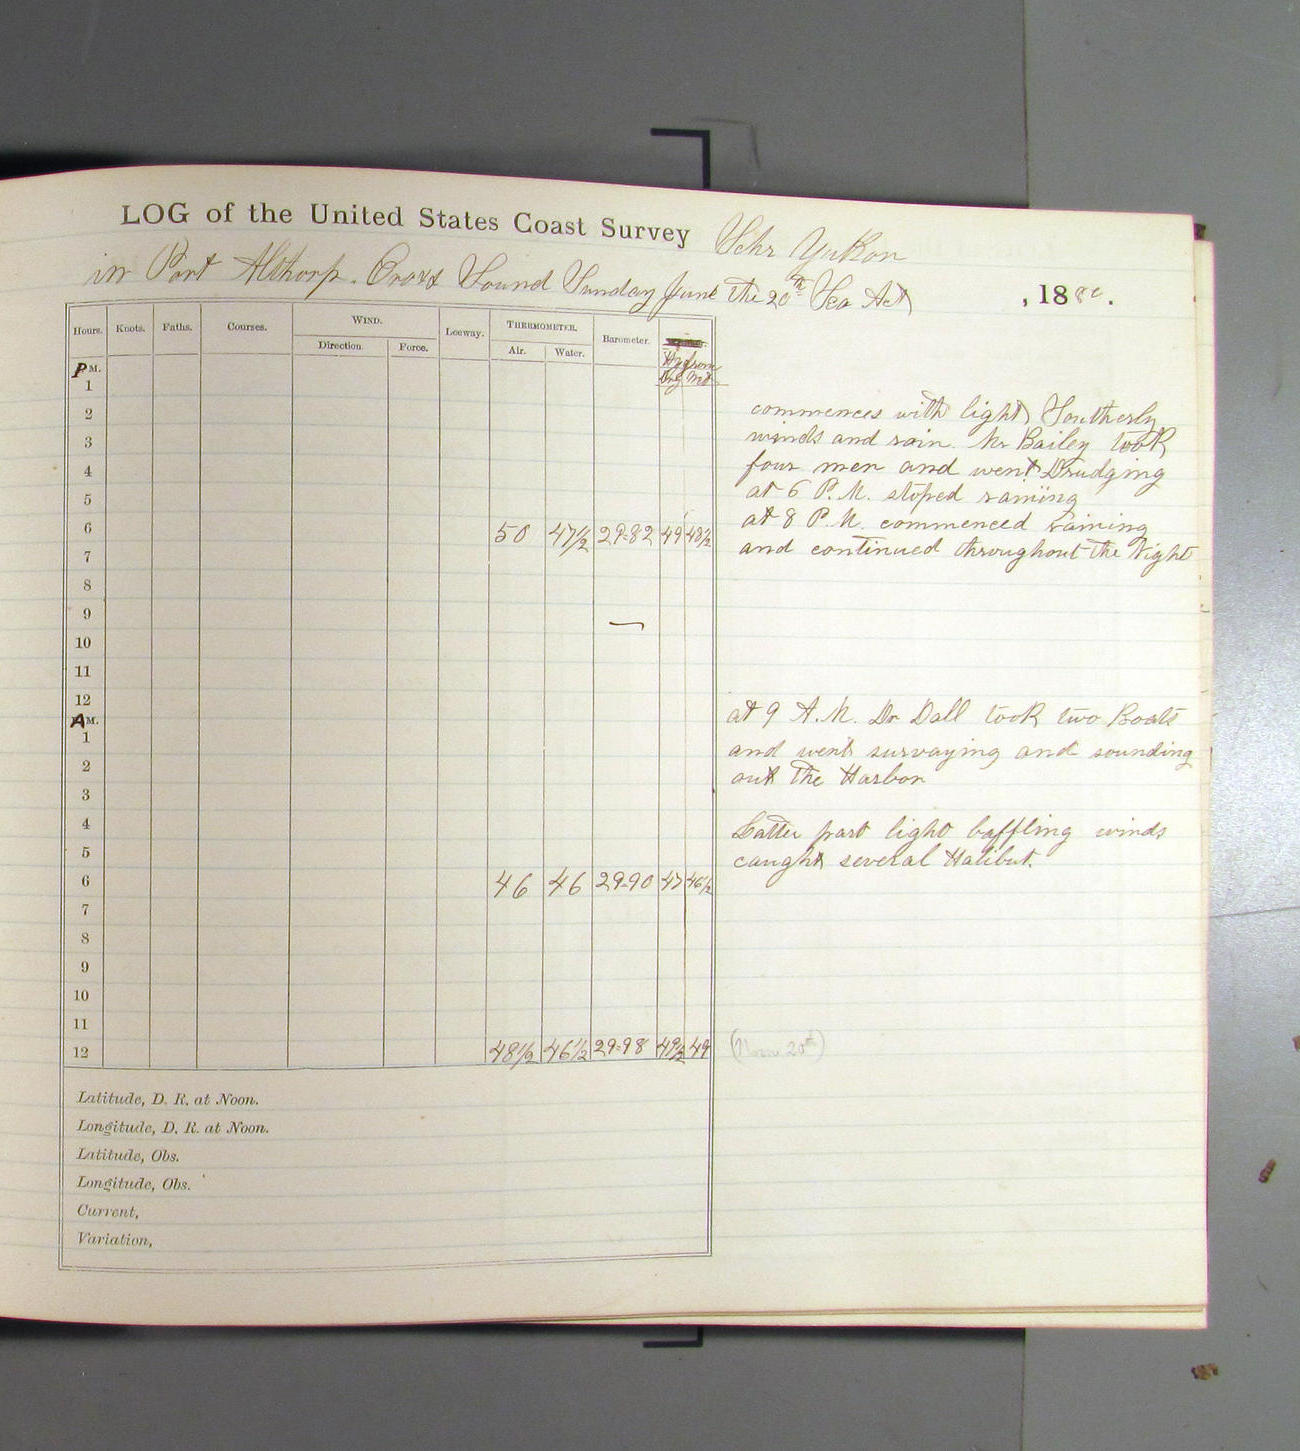 LOG of the United States Coast Survey Schr Yukon
in Port Althorp. Cross Sound Sunday June the 20th Sea Act , 1880.
Hours. Knots. Faths. Courses. WIND. Leeway. THERMOMETER. Barometer.
Direction. Force. Air. Water.
Hygrom
Dry Wet
PM.
1
2
3
4
5
6 50 47½ 29.82 49 48½
7
8
9
10
11
12
AM.
1
2
3
4
5
6 46 46 29.90 47 46½
7
8
9
10
11
12 48½ 46½ 29.98 49½ 49
commences with light Southerly
winds and rain. Mr Bailey took
four men and went Drudging
at 6 P.M. stoped raining
at 8 P.M. commenced raining
and continued throughout the Night
at 9 A.M. Dr Dall took two Boats
and went survaying and sounding
out the Harbor
Latter part light baffling winds
caught several Halibut.
(Noon 20th)
Latitude, D. R. at Noon.
Longitude, D. R. at Noon.
Latitude, Obs.
Longitude, Obs.
Current,
Variation,